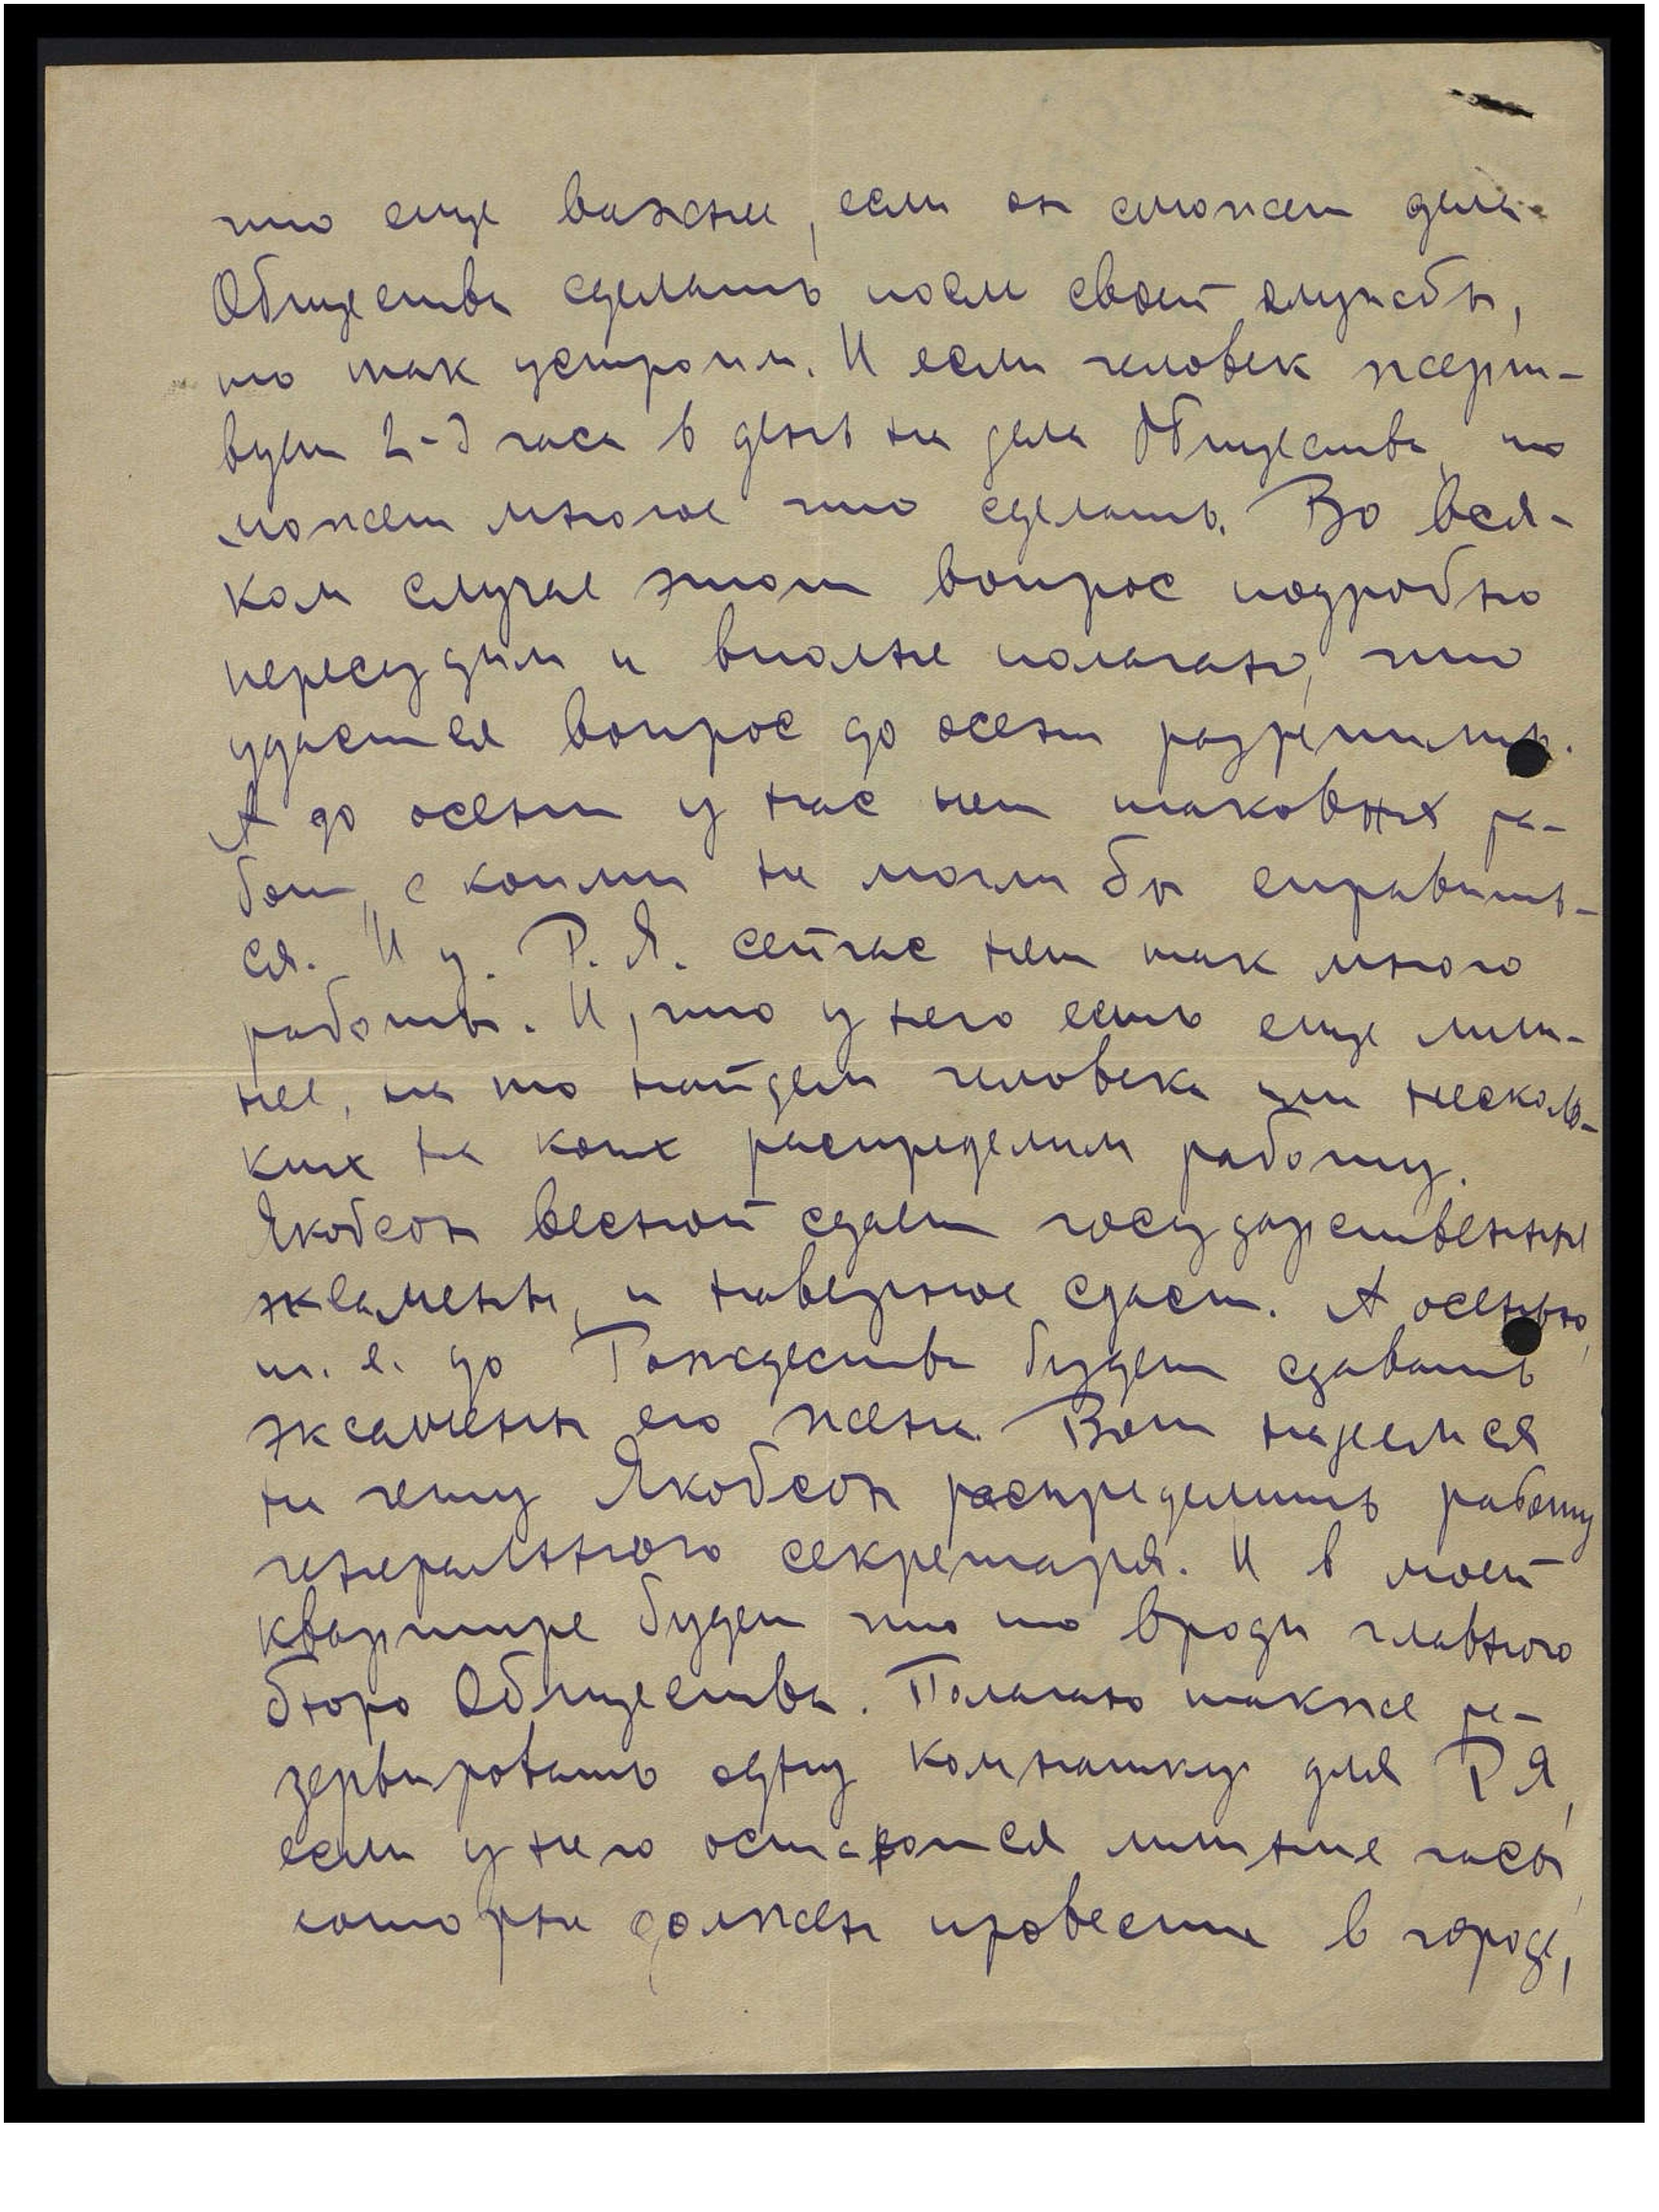 что еще важнее, если он сможет дела
Общества сделать после своей службы,
то так устроим. И если человек жерт-
вует 2-3 часа в день на дела Общества, то
может многое что сделать. Во вся-
ком случае этот вопрос подробно
пересудим и вполне полагаю, что
удастся вопрос до осени разрешить.
А до осени у нас нет таковых ра-
бот, с коими не могли бы справить-
ся. И у Р. Я. сейчас нет так много
работы. И, что у него есть еще лиш-
нее, на то найдем человека или несколь-
ких на коих распределим работу.
Якобсон весной сдает государственные
экзамены, и наверное сдаст. А осенью,
т. е. до Рождества будет сдавать
экзамены его жена. Вот надеемся
на чету Якобсон распределить работу
генерального секретаря. И в моей
квартире будет что то вроды главного
бюро Общества. Полагаю также ре-
зервировать одну комнатку для Р Я,
если у него остаются лишние часы,
которые должен провести в городе,